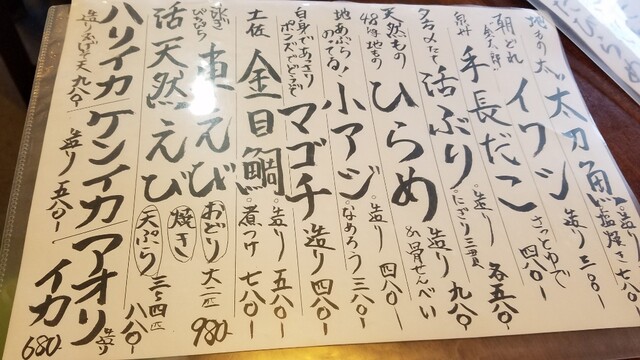 地もの 太い
太刀魚
造り
塩焼き 七八〇-
朝どれ
イワシ 造り 三八〇-
泉州
手長だこ さっとゆで 四八〇-
シメたて
活ぶり 造り にぎり三貫 各五八〇-
天然もの
48cm 地もの
ひらめ 造り 九八〇-
骨せんべい
地あぶら
のってる!
小アジ 造り 四八〇-
なめろう 三八〇-
白身であっさり
ポンズでどうぞ
マゴチ 造り 四八〇-
土佐
金目鯛 造り 五八〇-
煮つけ 七八〇-
泳ぎ
車えび おどり 大一匹 980-
活天然えび 焼き 天ぷら 三~四匹 八八〇-
ハリイカ 造り 九八〇-
ケンイカ 造り 五八〇-
アオリイカ 造り 680-